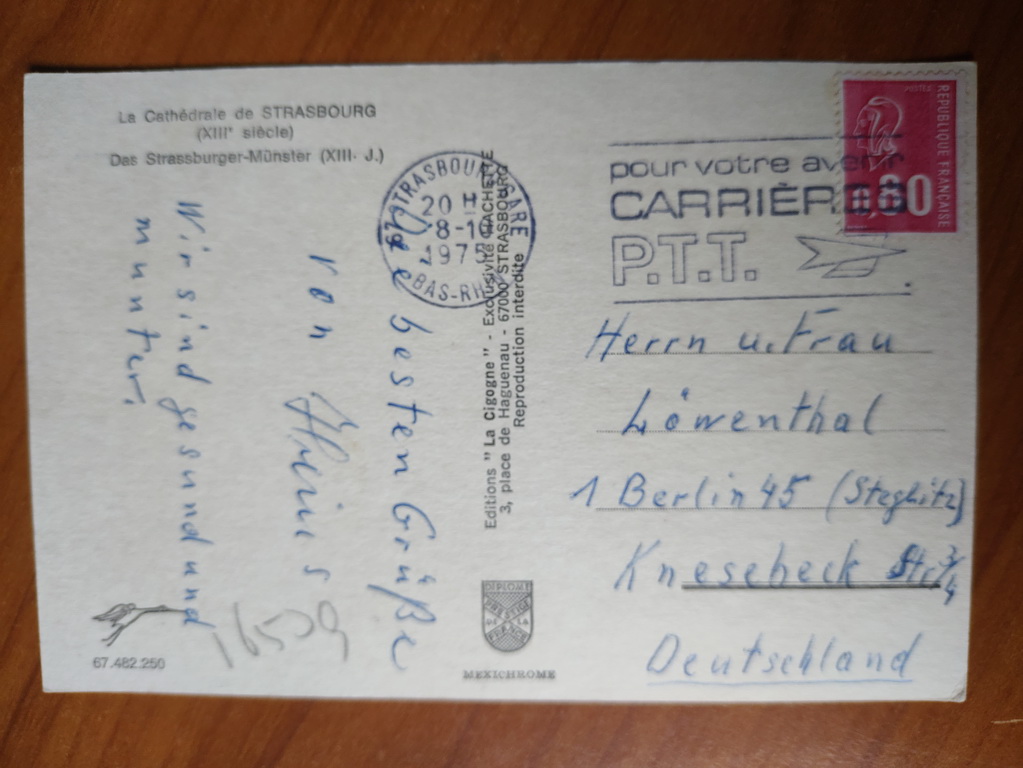 La Cathédrale de STRASBOURG
(XIIIᵉ siècle)
Das Strassburger-Münster (XIII. J.)
Die besten Grüße
von
Wir sind gesund und
munter.
16529
67.482.250
67 STRASBOURG GARE
20 H
8-10
1975
BAS-RHIN
Editions "La Cigogne" - Exclusivité HACHETTE
3, place de Haguenau - 67000 STRASBOURG
Reproduction interdite
DIPLOME
PRESTIGE
DE LA
FRANCE
MEXICHROME
POSTES
REPUBLIQUE FRANÇAISE
0,80
pour votre avenir
CARRIÈRES
P.T.T.
Herrn u. Frau
Löwenthal
1 Berlin 45 (Steglitz)
Knesebeck Str. 3/4
Deutschland